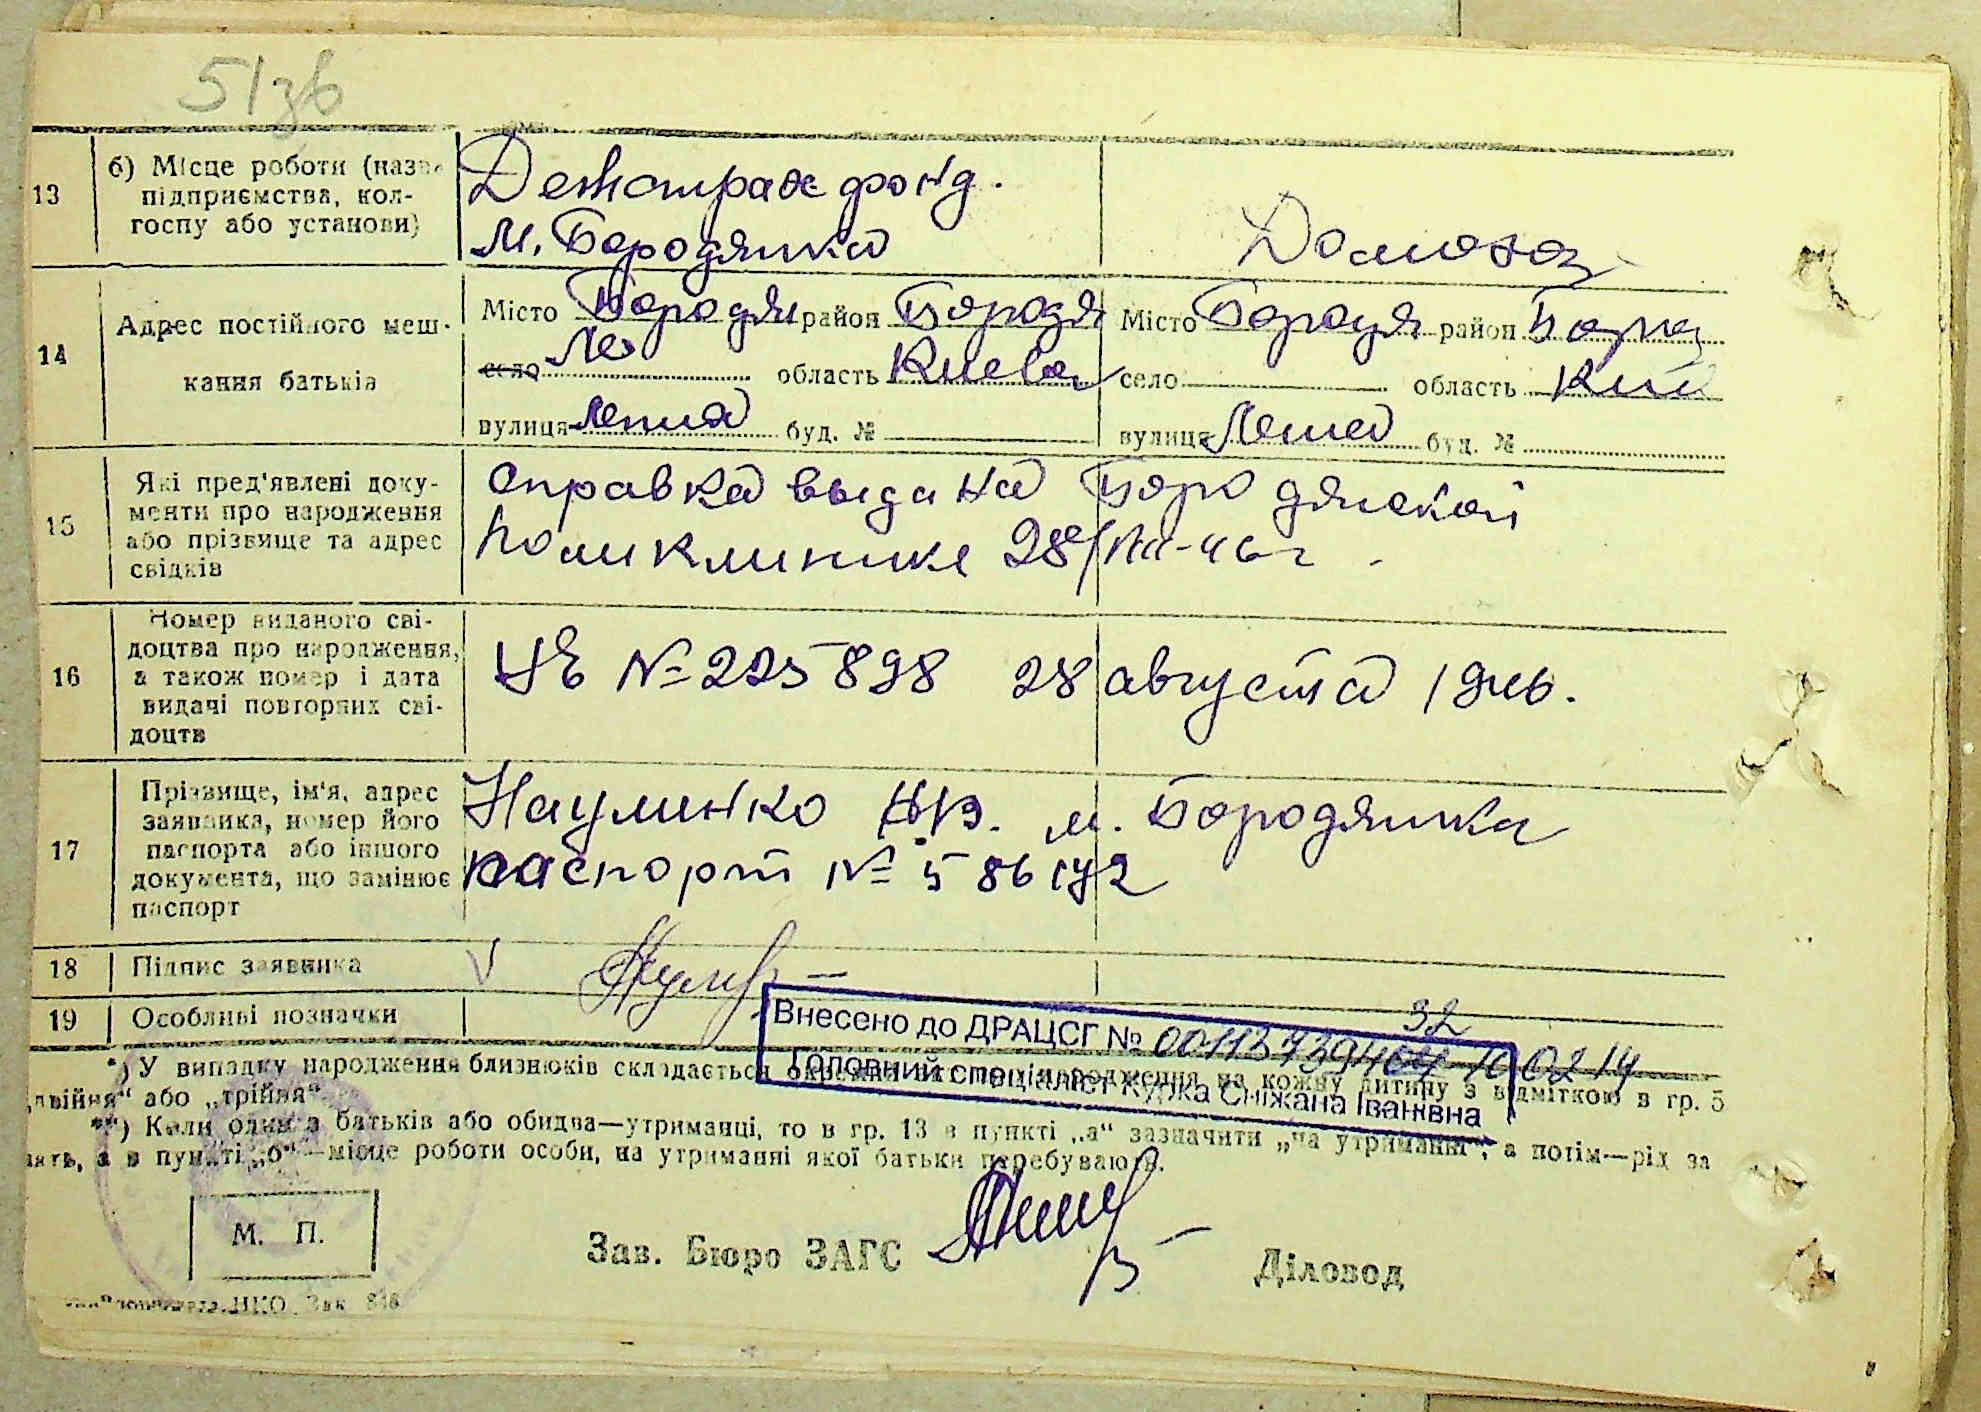 51зв
13
б) Місце роботи (назва
підприємства, кол-
госпу або установи)
фонд.
М. Бородянка
Домохоз
14
Адрес постійного меш-
кання батьків
Місто Бородян район Бородя
село область Киевс
вулиця Ленина буд. №
Місто Бородя район Бород
село область Кии
вулиця буд. №
15
Які пред'явлені доку-
менти про народження
або прізвище та адрес
свідків
Справка выдана Бородянской
Поликлинике 28/VIII-46г.
16
Номер виданого сві-
доцтва про народження,
а також номер і дата
видачі повторних сві-
доцтв
№ 225898 28 августа 1946.
17
Прізвище, ім'я, адрес
заявника, номер його
паспорта або іншого
документа, що замінює
паспорт
Науменко м. Бородянка
паспорт №
18
Підпис заявника
V
19
Особливі позначки
32
Внесено до ДРАЦСГ № 00113739404 10 02 14
Головний спеціаліст Куржа Сніжана Іванівна
*) У випадку народження близнюків складається окремий акт про народження на кожну дитину з відміткою в гр. 5
„двійня“ або „трійня“.
**) Коли один з батьків або обидва—утриманці, то в гр. 13 в пункті „а“ зазначити „на утриманні“, а потім—рід за
нять, а в пункті „б“—місце роботи особи, на утриманні якої батьки перебувають.
М. П.
Зав. Бюро ЗАГС
Діловод
НКО Зак. 848